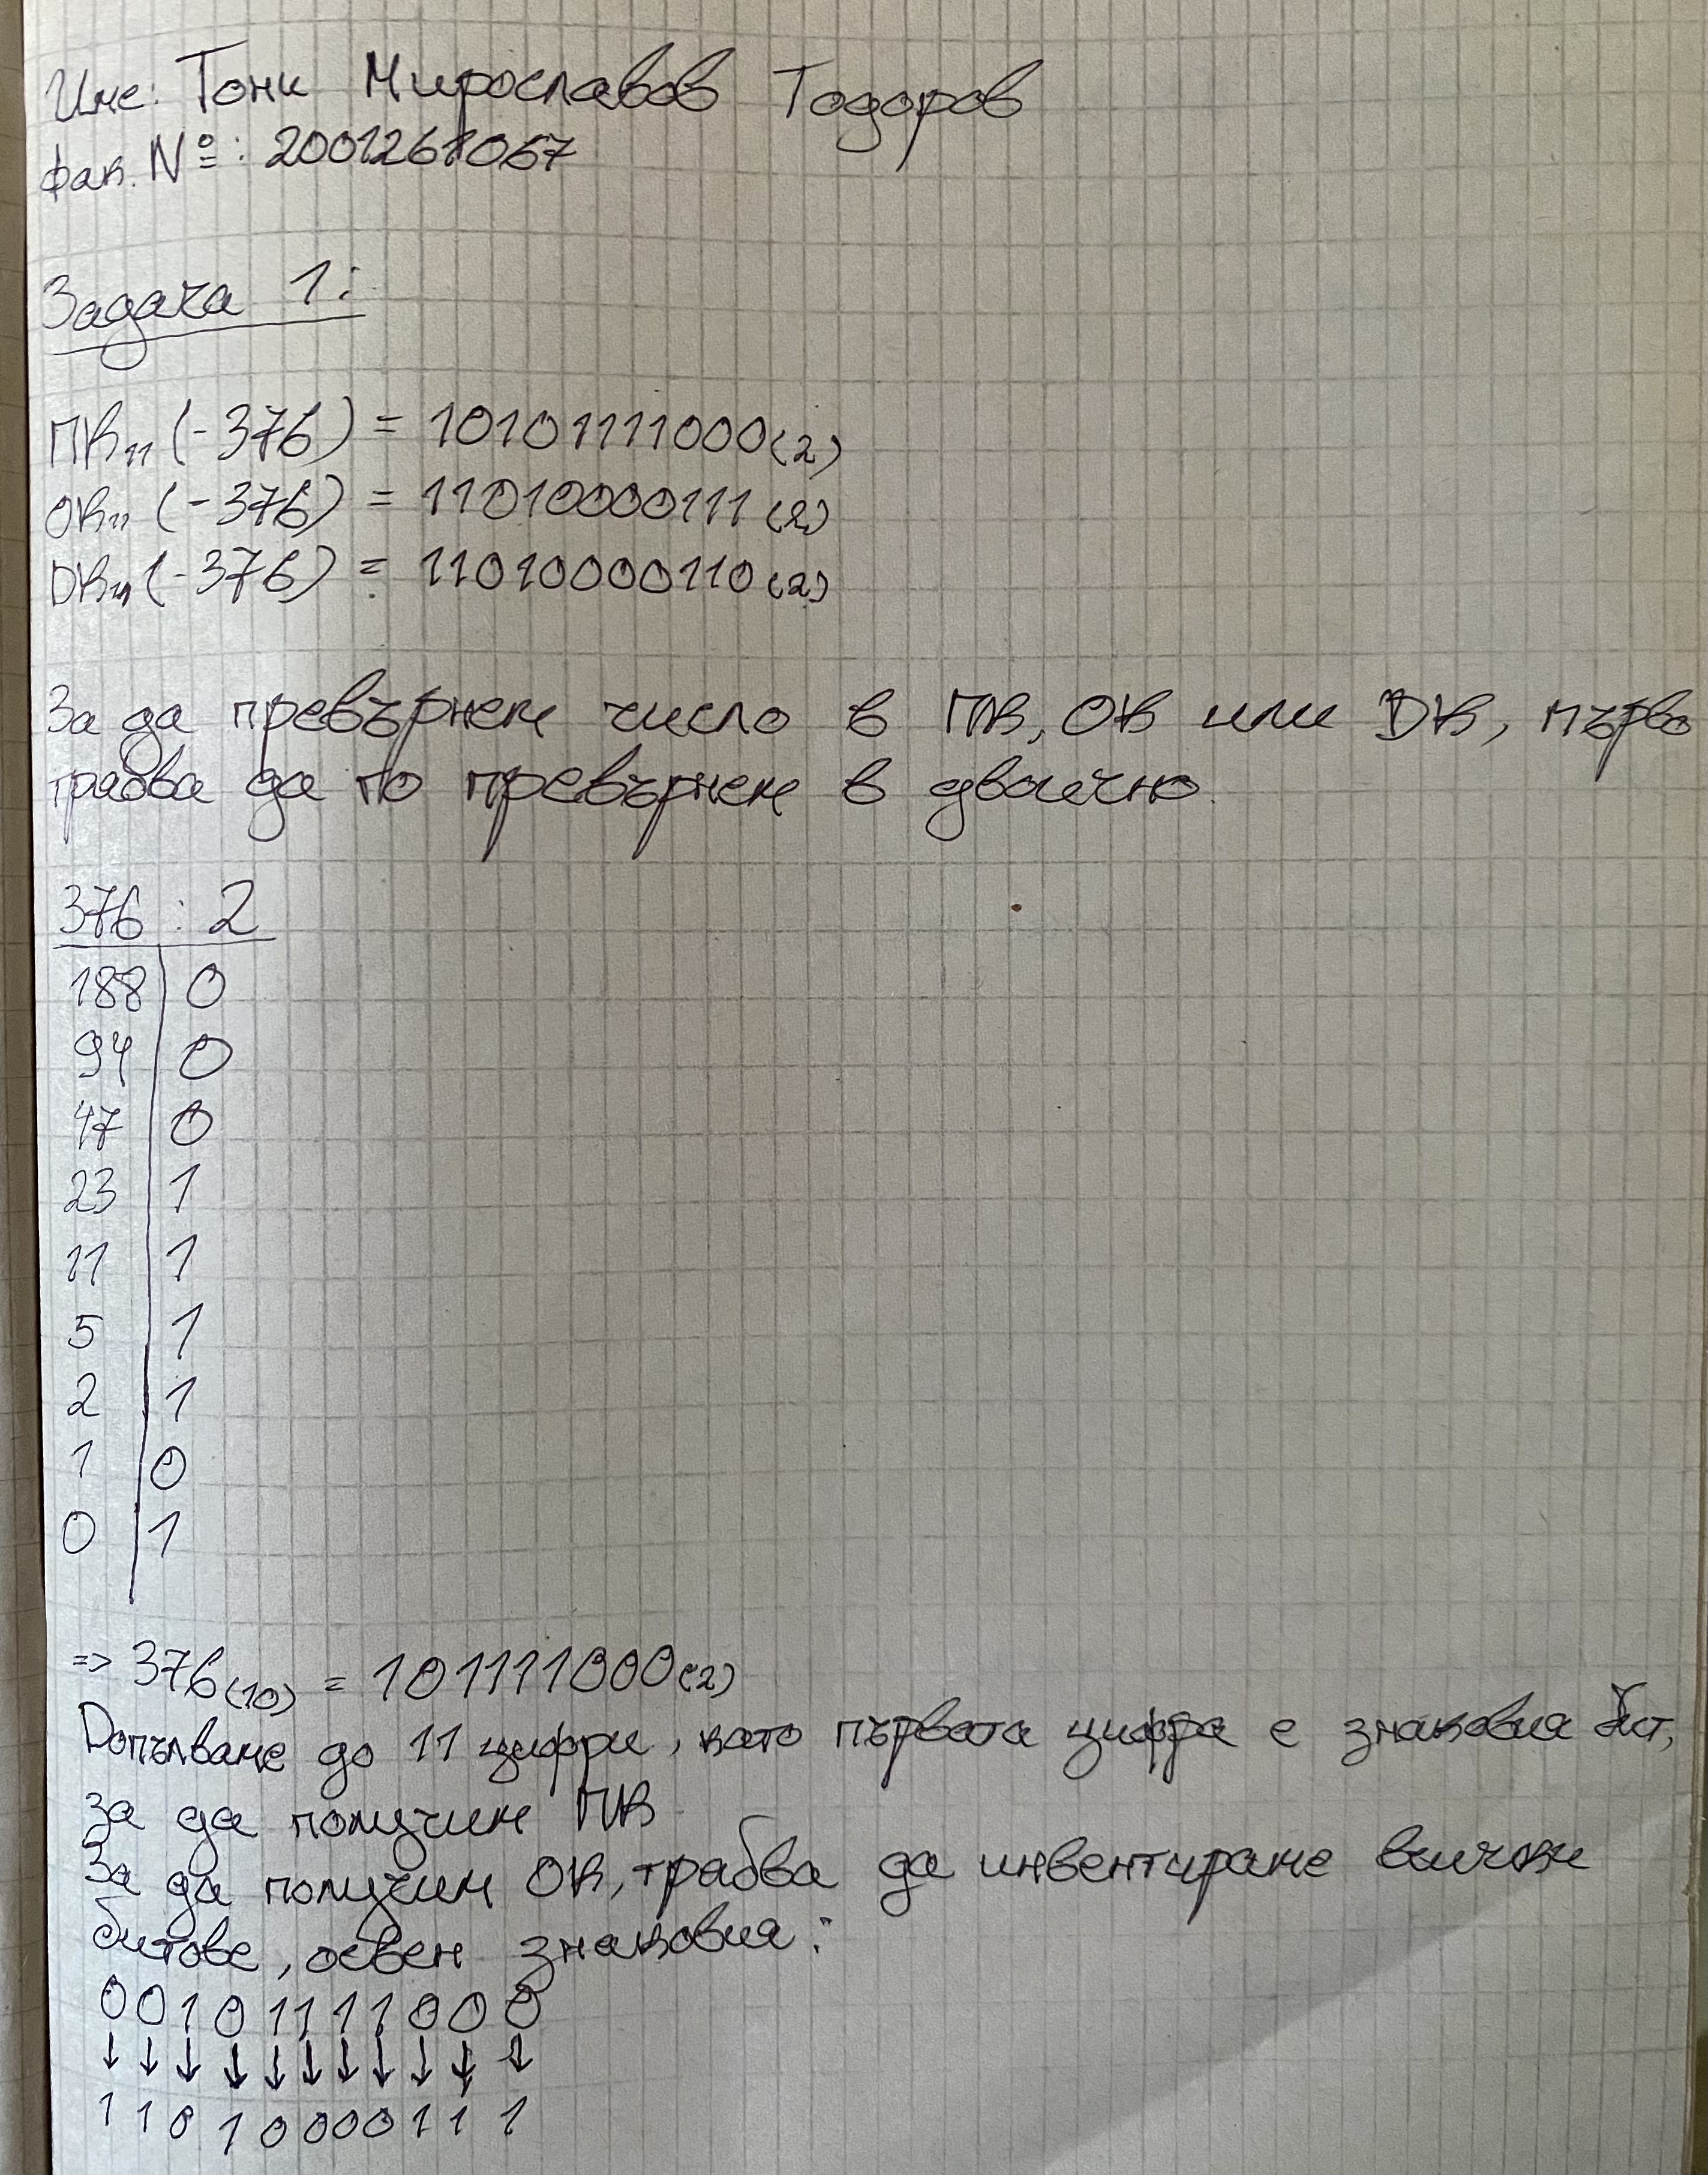 Име: Тони Мирославов Тодоров
Фак. №: 2001261067
Задача 1:
ПК₁₁ (-376) = 10101111000(2)
ОК₁₁ (-376) = 11010000111(2)
ДК₁₁ (-376) = 11010000110(2)
За да превърнем число в ПК, ОК или ДК, първо
трябва да го превърнем в двоично.
376 : 2
188 | 0
94 | 0
47 | 0
23 | 1
11 | 1
5 | 1
2 | 1
1 | 0
0 | 1
=> 376(10) = 101111000(2)
Допълваме до 11 цифри, като първата цифра е знаковия бит,
за да получим ПК
За да получим ОК, трябва да инвентираме всички
битове, освен знаковия:
0 0 1 0 1 1 1 1 0 0 0
↓ ↓ ↓ ↓ ↓ ↓ ↓ ↓ ↓ ↓ ↓
1 1 0 1 0 0 0 0 1 1 1